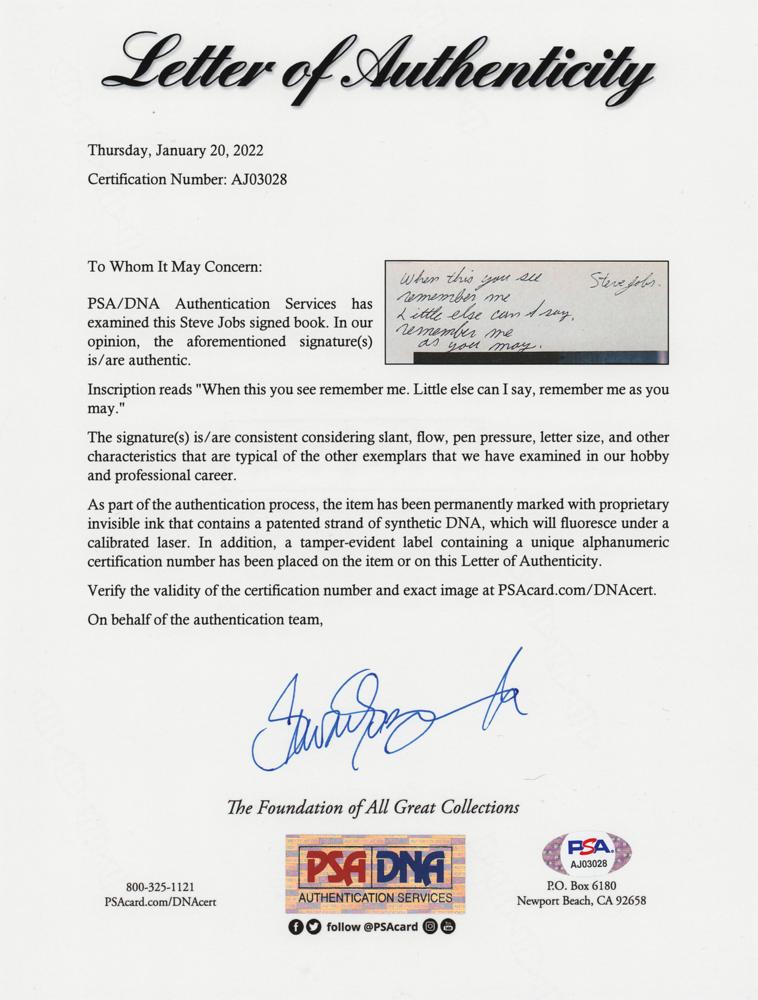 Letter of Authenticity
Thursday, January 20, 2022
Certification Number: AJ03028
To Whom It May Concern:
PSA/DNA Authentication Services has
examined this Steve Jobs signed book. In our
opinion, the aforementioned signature(s)
is/are authentic.
When this you see
remember me
Little else can I say,
remember me
as you may.
Steve Jobs.
Inscription reads "When this you see remember me. Little else can I say, remember me as you
may."
The signature(s) is/are consistent considering slant, flow, pen pressure, letter size, and other
characteristics that are typical of the other exemplars that we have examined in our hobby
and professional career.
As part of the authentication process, the item has been permanently marked with proprietary
invisible ink that contains a patented strand of synthetic DNA, which will fluoresce under a
calibrated laser. In addition, a tamper-evident label containing a unique alphanumeric
certification number has been placed on the item or on this Letter of Authenticity.
Verify the validity of the certification number and exact image at PSAcard.com/DNAcert.
On behalf of the authentication team,
The Foundation of All Great Collections
800-325-1121
PSAcard.com/DNAcert
PSA DNA
AUTHENTICATION SERVICES
follow @PSAcard
PSA
AJ03028
P.O. Box 6180
Newport Beach, CA 92658